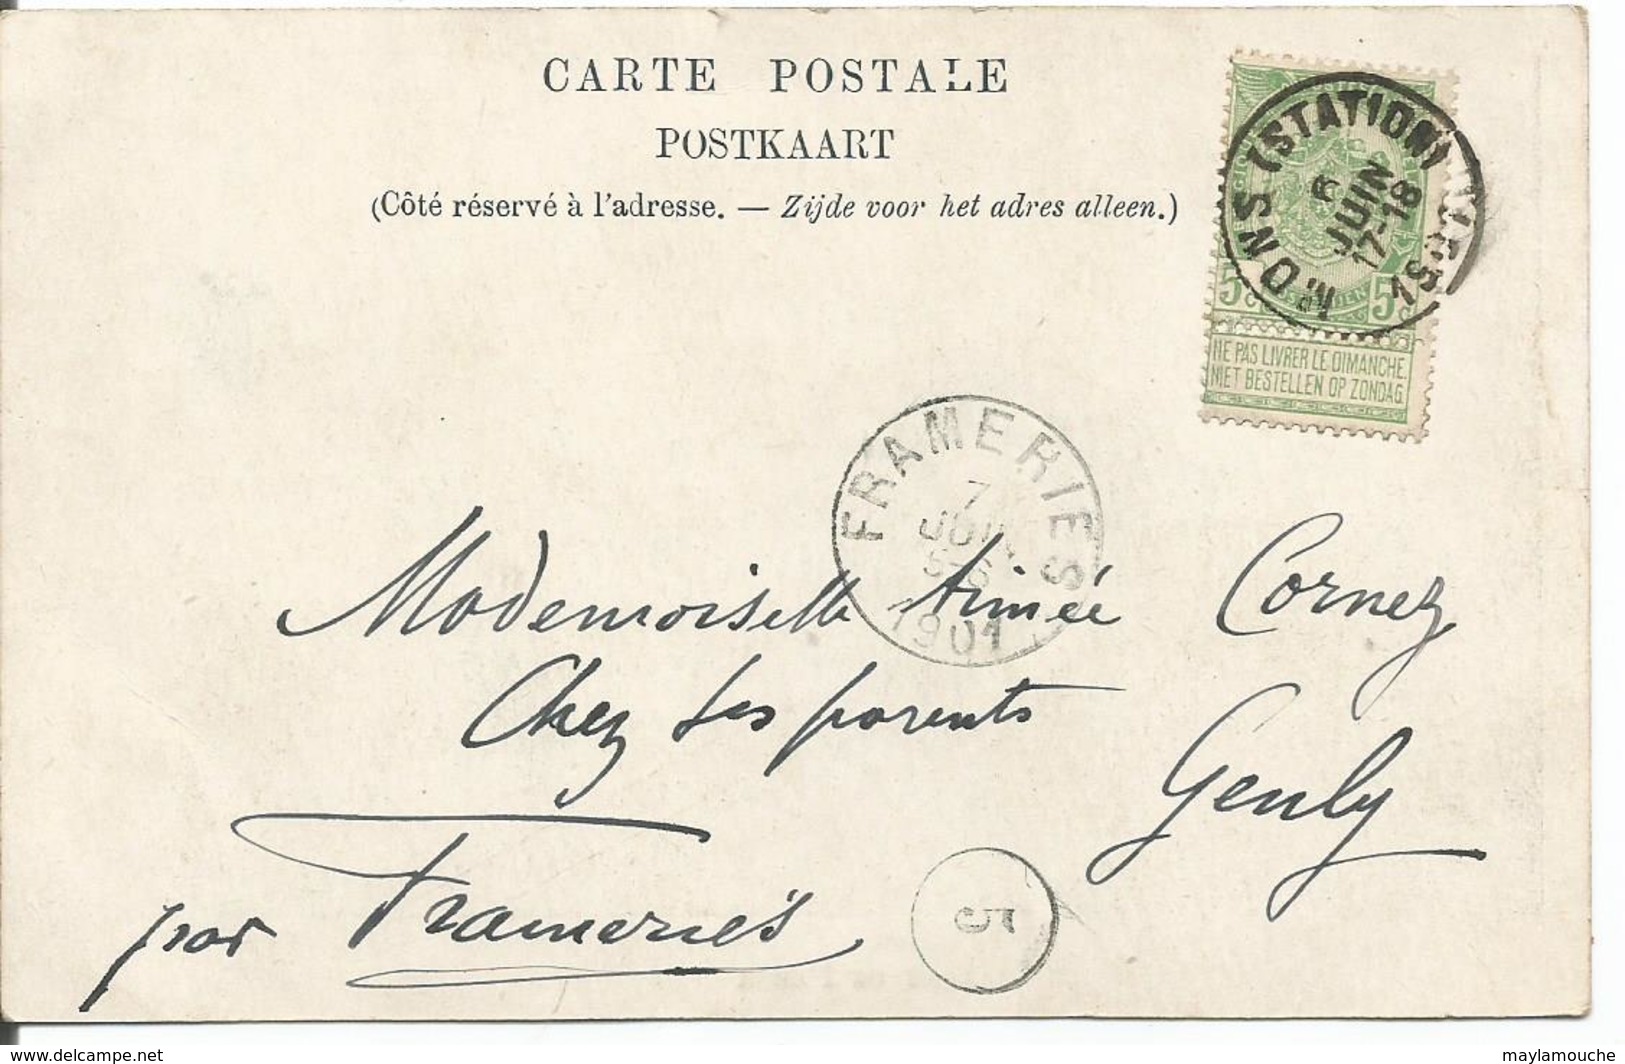 CARTE POSTALE
POSTKAART
(Côté réservé à l'adresse. — Zijde voor het adres alleen.)
MONS (STATION)
6
JUIN
17-18
5
5
NE PAS LIVRER LE DIMANCHE.
NIET BESTELLEN OP ZONDAG.
FRAMERIES
7
JUIN
5-6
1901
Mademoiselle Aimée Cornez
Chez ses parents
Genly
par Frameries
5
www.delcampe.net
maylamouche